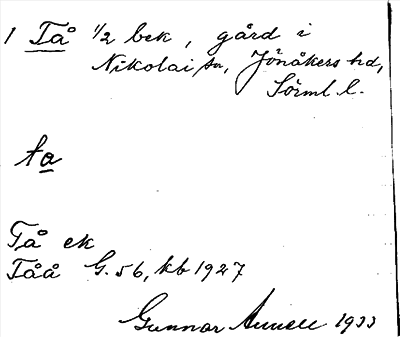 1 Tå 1/2 bek, gård i
Nikolai sn, Jönåkers hd,
Sörml l.
ta
Tå ek
Tåå G. 56, kb 1927
Gunnar Annell 1933